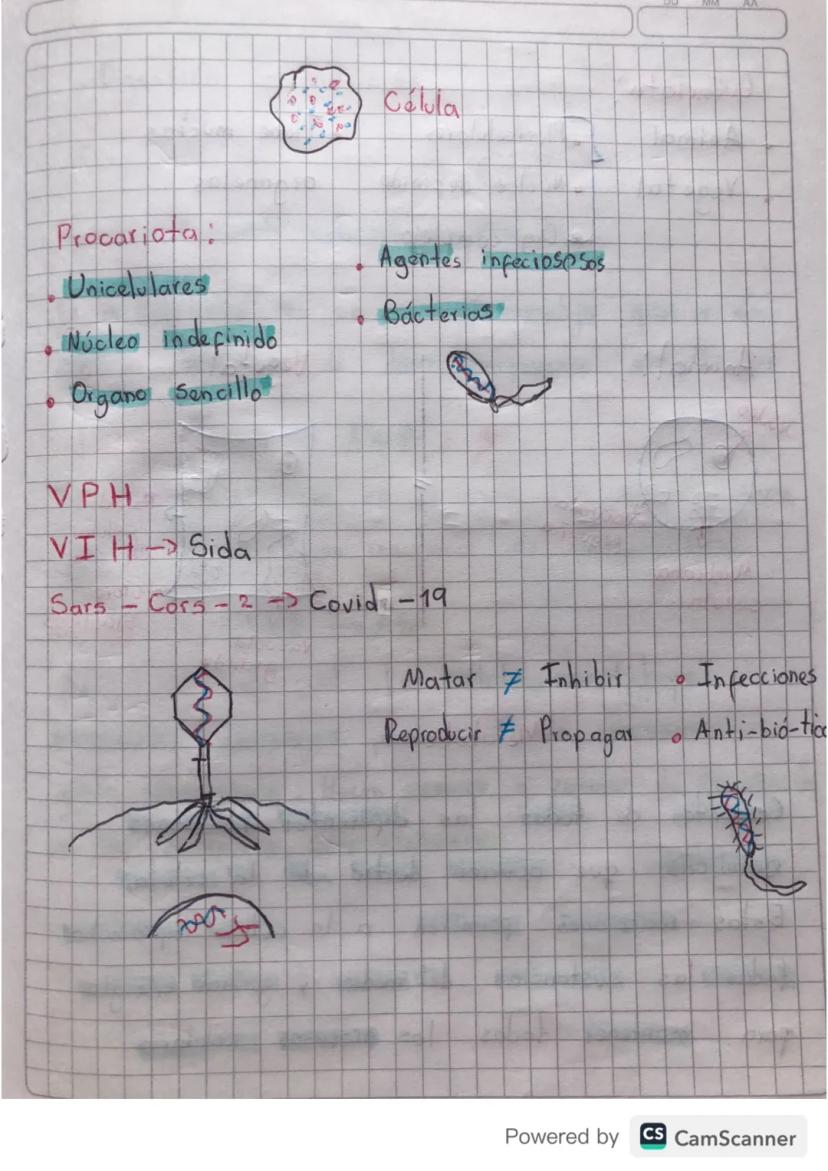 DD MM AA
Célula
Procariota:
• Unicelulares
• Núcleo indefinido
• Organo Sencillo
• Agentes infeciososos
• Bácterias
VPH
VIH -> Sida
Sars - Cors - 2 -> Covid -19
Matar ≠ Inhibir
Reproducir ≠ Propagar
• Infecciones
• Anti-bió-tico
Powered by CS CamScanner